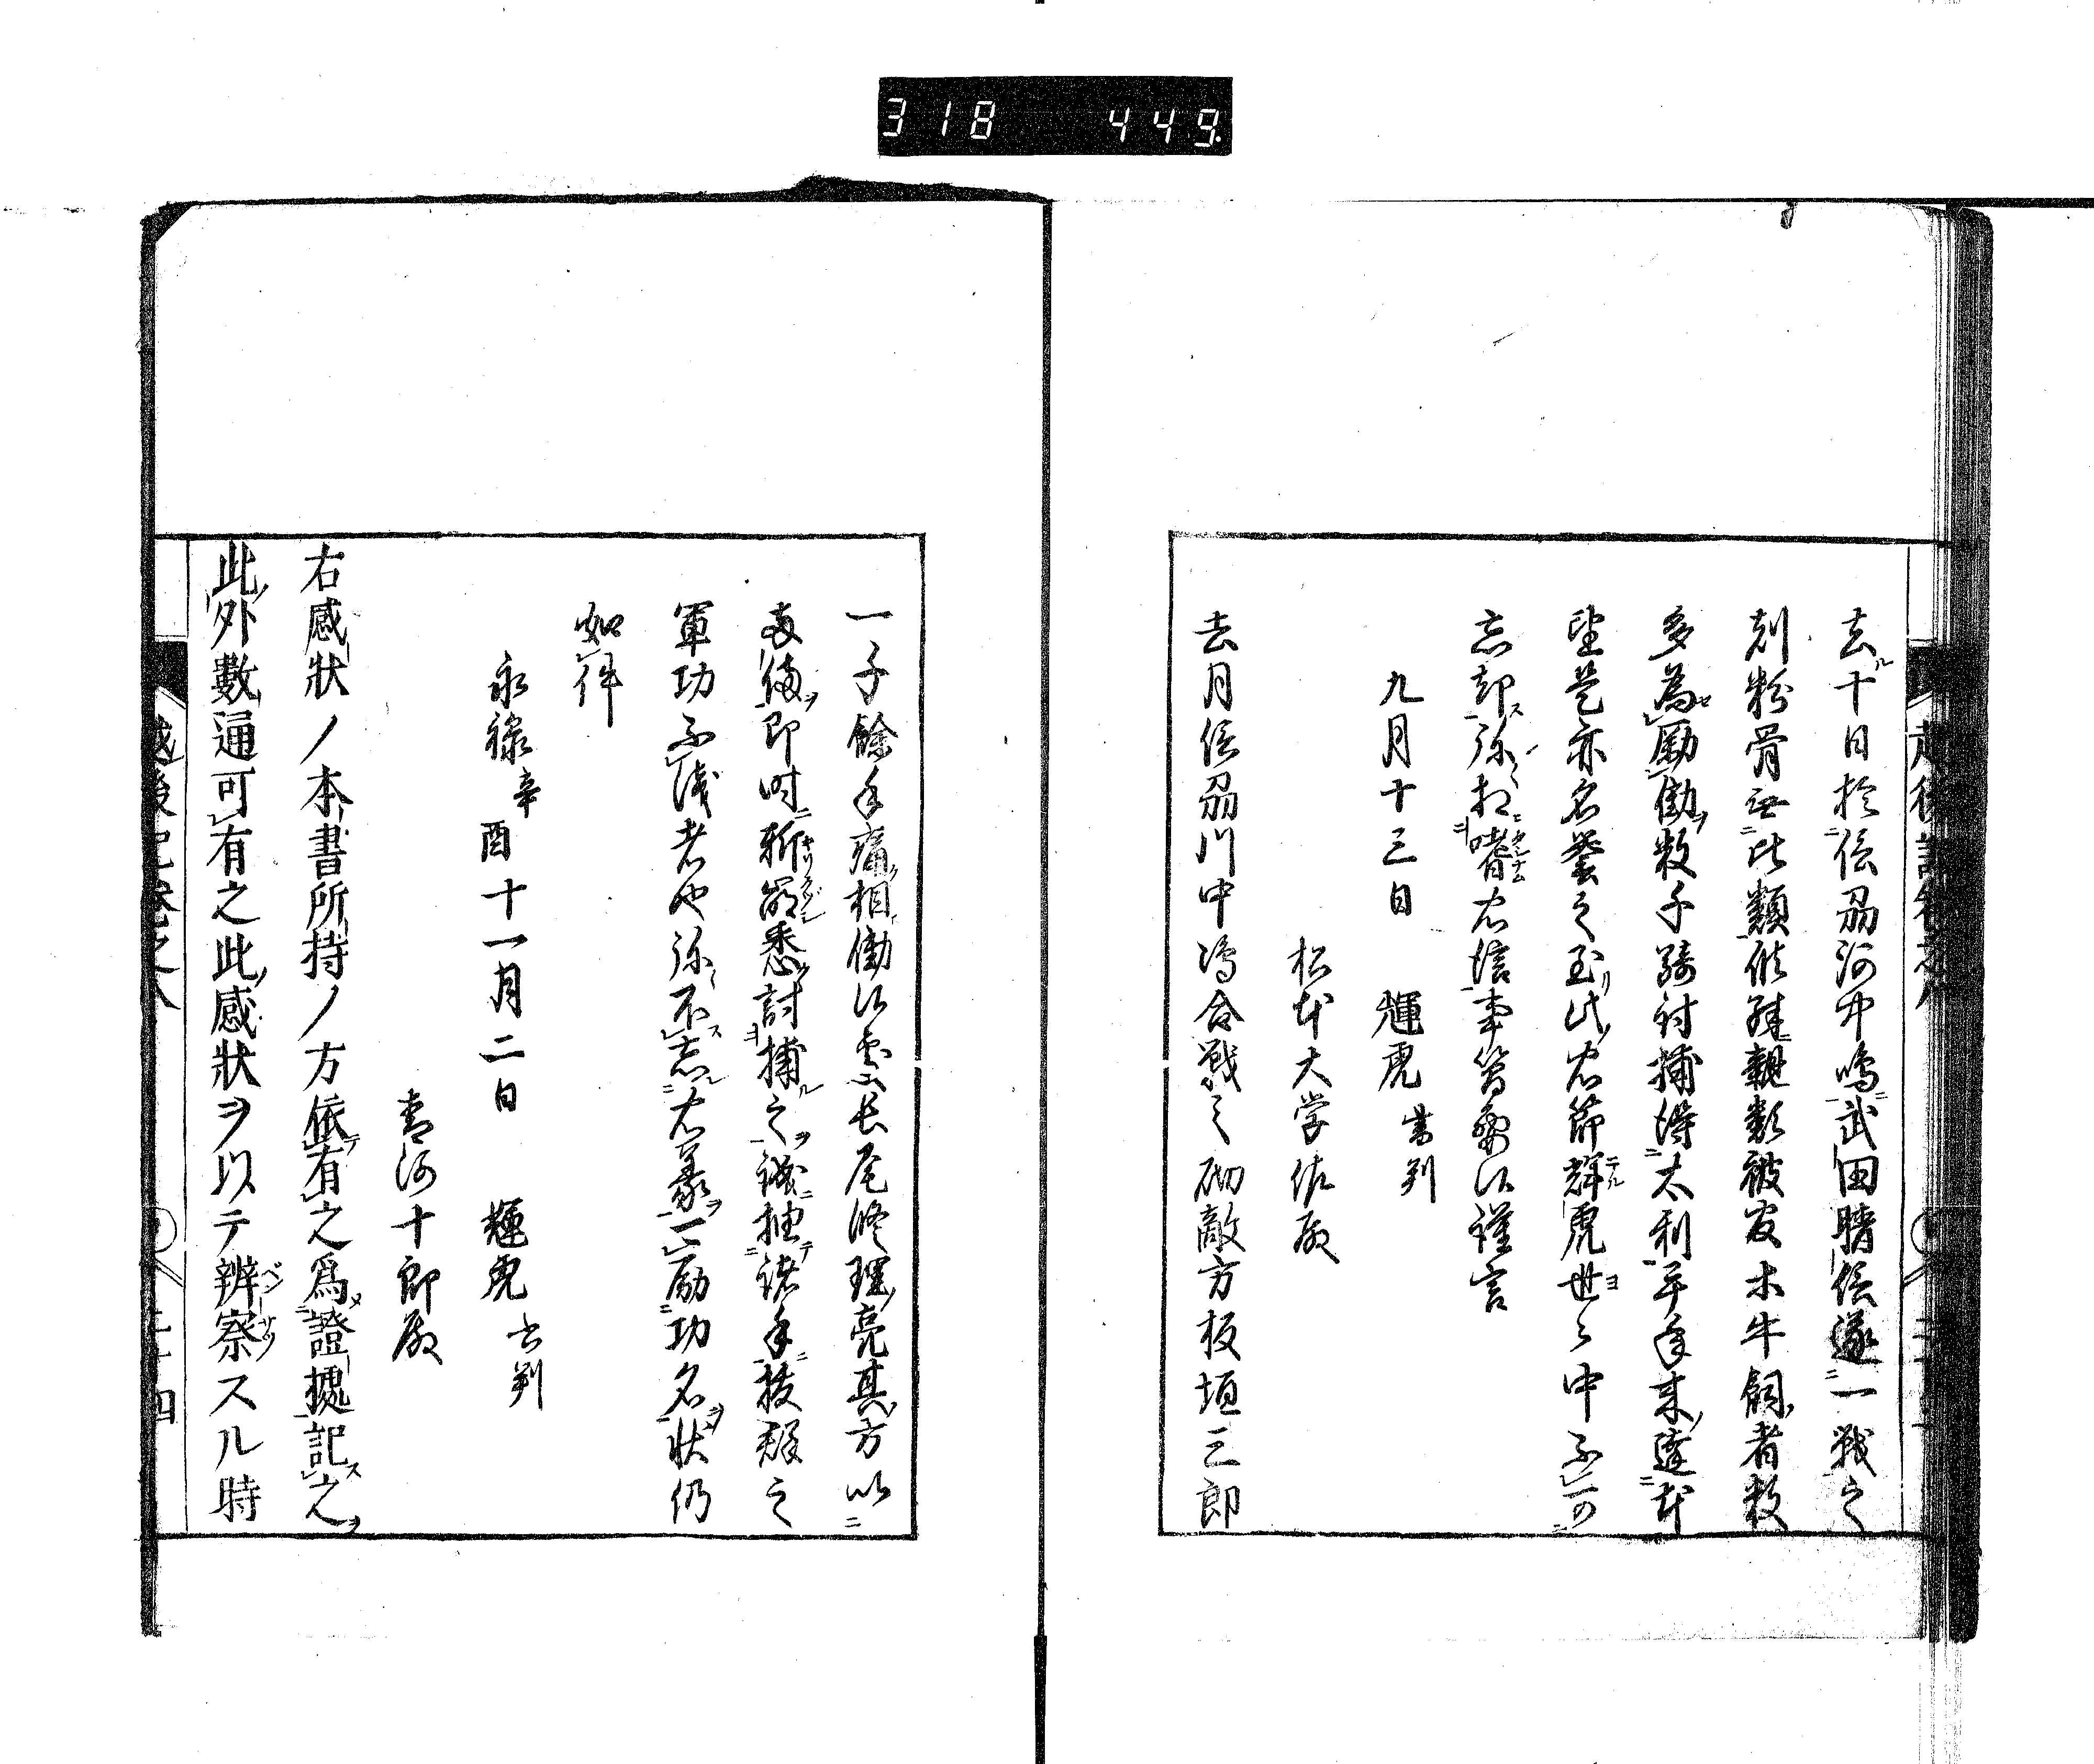 318 449.
去ル十日於信刕河中嶋武田晴信遂一戦之
刻粉骨無比類候殊親類被官木牛飼者数
多為励働数千騎討捕得太利平年来達本
望是亦名誉之至此忠節輝虎世々中不可
忘却弥相嗜忠信事簡要候謹言
九月十三日 輝虎 書判
松本大学佐殿
去月信刕川中嶋合戦之砌敵方板垣三郎
一千餘手痛相働候処長尾修理亮其方以
両備即時斬崩悉討捕之誠抽諸手抜群之
軍功不浅者也弥不忘右義可励功名状仍
如件
永禄辛酉十一月二日 輝虎 書判
青河十郎殿
右感状ノ本書所持ノ方依有之為證據記之
此外數通可有之此感状ヲ以テ辨察スル時
越後記巻之八